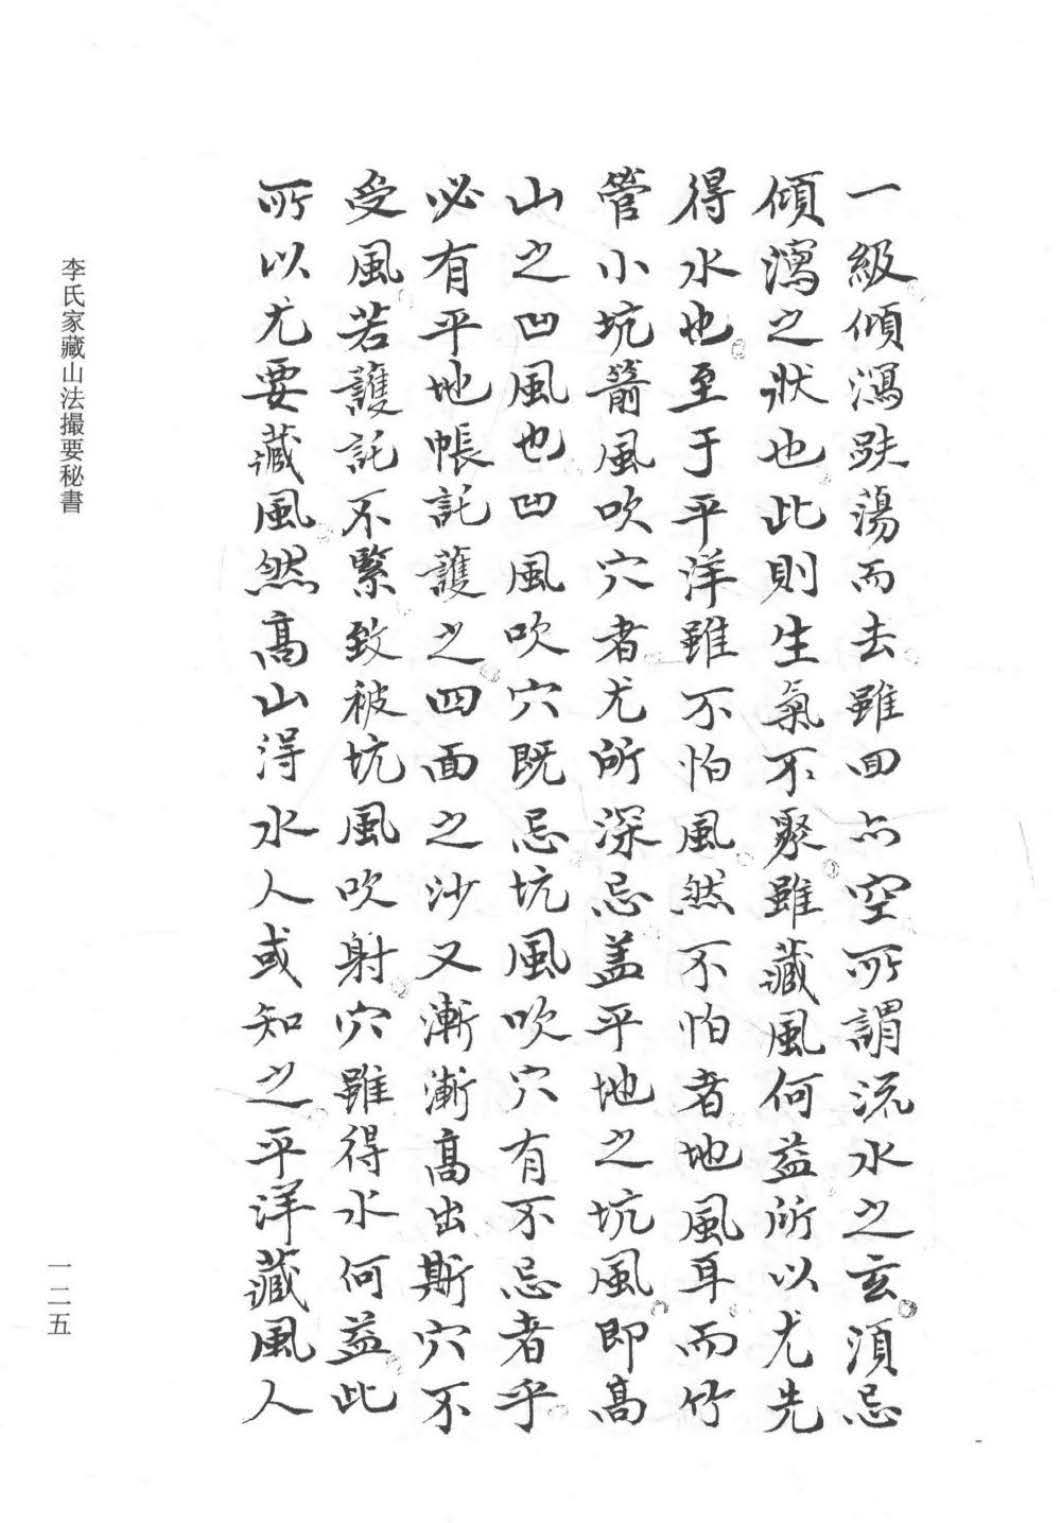 一級傾瀉趺蕩而去雖回亦空所謂流水之玄須忌
傾瀉之狀也此則生氣不聚雖藏風何益所以尤先
得水也至于平洋雖不怕風然不怕者地風耳而竹
管小坑箭風吹穴者尤所深忌盖平地之坑風即高
山之凹風也凹風吹穴既忌坑風吹穴有不忌者乎
必有平地帳託護之四面之沙又漸漸高出斯穴不
受風若護託不緊致被坑風吹射穴雖得水何益此
所以尤要藏風然高山得水人或知之平洋藏風人
李氏家藏山法撮要秘書
一二五